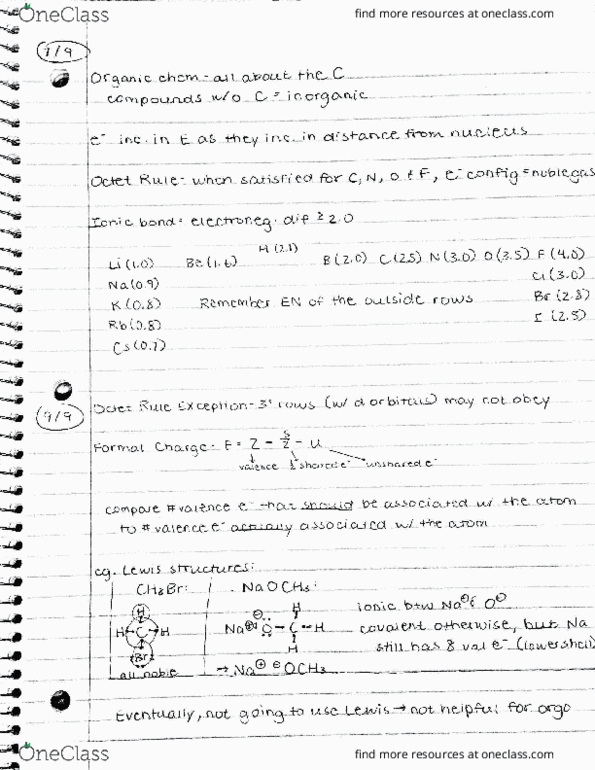 OneClass
find more resources at oneclass.com
7/9
Organic chem - all about the C
compounds w/o C = inorganic
e⁻ inc. in E as they inc. in distance from nucleus
Octet Rule - when satisfied for C, N, O & F, e⁻ config = noble gas
Ionic bond = electroneg. dif ≥ 2.0
H (2.1)
Li (1.0) Be (1.6) B (2.0) C (2.5) N (3.0) O (3.5) F (4.0)
Na (0.9) Cl (3.0)
K (0.8) Remember EN of the outside rows Br (2.8)
Rb (0.8) I (2.5)
Cs (0.7)
9/9
Octet Rule Exception - 3⁺ rows (w/ d orbitals) may not obey
Formal Charge: F = Z - S/2 - U
valence shared e⁻ unshared e⁻
compare # valence e⁻ that should be associated w/ the atom
to # valence e⁻ actually associated w/ the atom
eg. Lewis structures:
CH₃Br: NaOCH₃:
H H
H-C-H Na⊕ O⊖ - C - H
Br H
all noble → Na⊕ ⊖OCH₃
ionic btw Na⊕ & O⊖
covalent otherwise, but Na
still has 8 val e⁻ (lower shell)
Eventually, not going to use Lewis → not helpful for orgo
OneClass
find more resources at oneclass.com